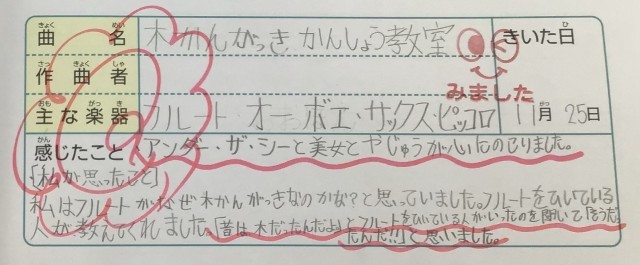 曲名 木かんがっき かんしょう教室 きいた日
みました
作曲者
主な楽器 フルート・オーボエ・サックス・ピッコロ 11月25日
感じたこと・アンダー・ザ・シーと美女とやじゅうが心にのこりました。
「私が思ったこと」
私はフルートがなぜ木かんがっきなのかな?と思っていました。フルートをひいている
人が教えてくれました。「昔は木だったんだよ」とフルートをひいている人がいったのを聞いて「そうだっ
たんだ!!」と思いました。